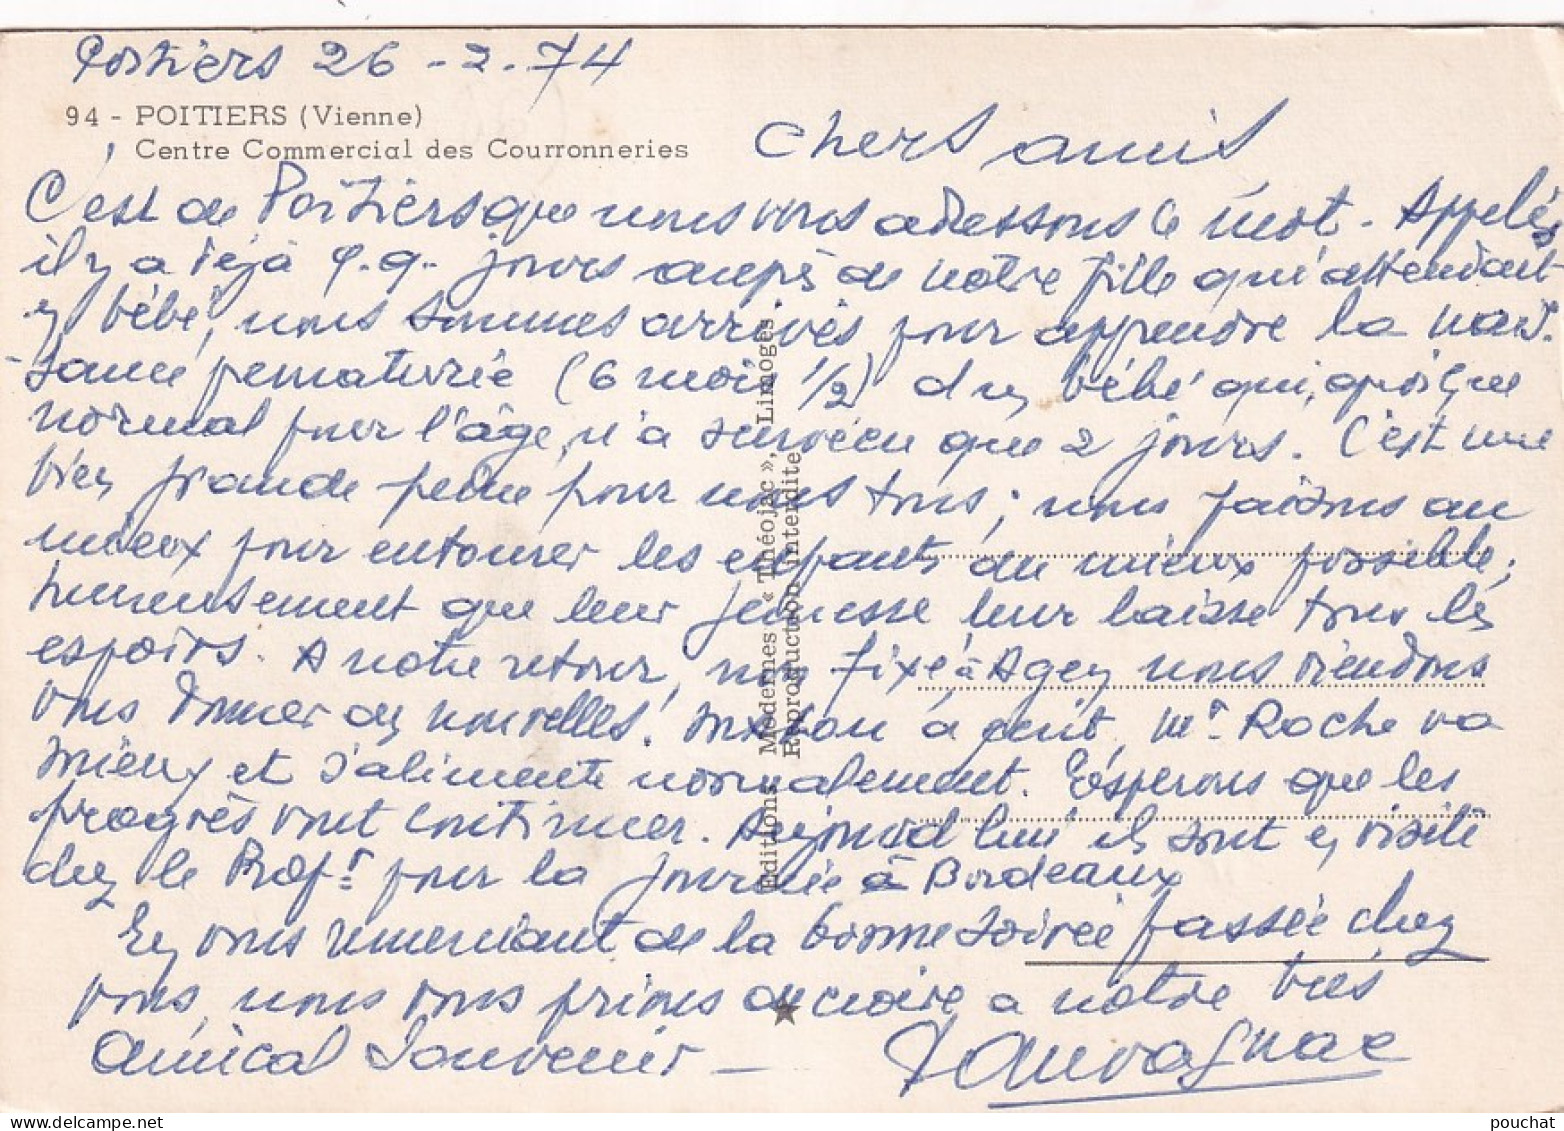 Poitiers 26-2-74
94 - POITIERS (Vienne)
Centre Commercial des Courronneries
Chers amis,
C'est de Poitiers que nous vous adressons ce mot. Appelés
il y a déjà q.q. jours auprès de notre fille qui attendait
un bébé, nous sommes arrivés pour apprendre la nais-
sance prématurée (6 mois 1/2) d'un bébé qui, quoique
normal pour l'âge, n'a survécu que 2 jours. C'est une
bien grande peine pour nous tous ; nous faisons au
mieux pour entourer les enfants au mieux possible ;
heureusement que leur jeunesse leur laisse tous les
espoirs. A notre retour, non fixé à Agen nous viendrons
vous donner des nouvelles. à cout, Mr Roche va
mieux et s'alimente normalement. Espérons que les
progrès vont continuer. Aujourd'hui ils sont en visite
chez le Profr pour la journée à Bordeaux
En vous remerciant de la bonne soirée passée chez
vous, nous vous prions de croire a notre très
amical souvenir —
Lauvagnac
Editions Modernes « Théojac », Limoges
Reproduction interdite
pouchat